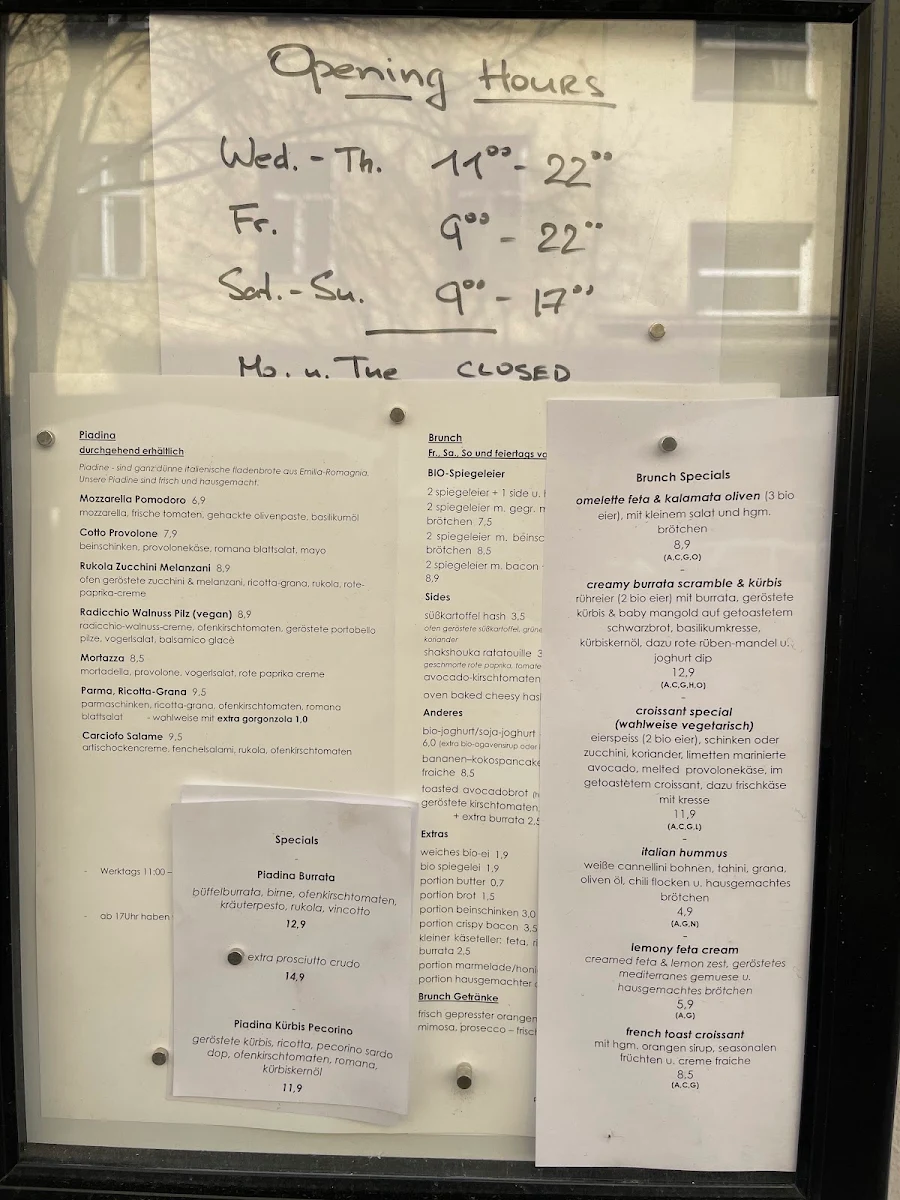 Opening Hours
Wed. - Th. 11⁰⁰ - 22⁰⁰
Fr. 9⁰⁰ - 22⁰⁰
Sat. - Su. 9⁰⁰ - 17⁰⁰
Mo. u. Tue CLOSED
Piadina
durchgehend erhältlich
Piadine - sind ganz dünne italienische fladenbrote aus Emilia-Romagnia.
Unsere Piadine sind frisch und hausgemacht.
Mozzarella Pomodoro 6,9
mozzarella, frische tomaten, gehackte olivenpaste, basilikumöl
Cotto Provolone 7,9
beinschinken, provolonekäse, romana blattsalat, mayo
Rukola Zucchini Melanzani 8,9
ofen geröstete zucchini & melanzani, ricotta-grana, rukola, rote-
paprika-creme
Radicchio Walnuss Pilz (vegan) 8,9
radicchio-walnuss-creme, ofenkirschtomaten, geröstete portobello
pilze, vogerlsalat, balsamico glacè
Mortazza 8,5
mortadella, provolone, vogerlsalat, rote paprika creme
Parma, Ricotta-Grana 9,5
parmaschinken, ricotta-grana, ofenkirschtomaten, romana
blattsalat - wahlweise mit extra gorgonzola 1,0
Carciofo Salame 9,5
artischockencreme, fenchelsalami, rukola, ofenkirschtomaten
- Werktags 11:00 –
- ab 17Uhr haben
Specials
-
Piadina Burrata
büffelburrata, birne, ofenkirschtomaten,
kräuterpesto, rukola, vincotto
12,9
extra prosciutto crudo
14,9
-
Piadina Kürbis Pecorino
geröstete kürbis, ricotta, pecorino sardo
dop, ofenkirschtomaten, romana,
kürbiskernöl
11,9
Brunch
Fr., Sa., So und feiertags
BIO-Spiegeleier
2 spiegeleier + 1 side u.
2 spiegeleier m. gegr.
brötchen 7,5
2 spiegeleier m. beinsc
brötchen 8,5
2 spiegeleier m. bacon
8,9
Sides
süßkartoffel hash 3,5
ofen geröstete süßkartoffel, grüne
koriander
shakshouka ratatouille 3
geschmorte rote paprika, tomate
avocado-kirschtomaten
oven baked cheesy has
Anderes
bio-joghurt/soja-joghurt
6,0 (extra bio-agavensirup oder
bananen–kokospancake
fraiche 8,5
toasted avocadobrot
geröstete kirschtomaten,
+ extra burrata 2,5
Extras
weiches bio-ei 1,9
bio spiegelei 1,9
portion butter 0,7
portion brot 1,5
portion beinschinken 3,0
portion crispy bacon 3,5
kleiner käseteller: feta,
burrata 2,5
portion marmelade/honi
portion hausgemachter
Brunch Getränke
frisch gepresster orangen
mimosa, prosecco – frisc
Brunch Specials
omelette feta & kalamata oliven (3 bio
eier), mit kleinem salat und hgm.
brötchen
8,9
(A,C,G,O)
-
creamy burrata scramble & kürbis
rühreier (2 bio eier) mit burrata, geröstete
kürbis & baby mangold auf getoastetem
schwarzbrot, basilikumkresse,
kürbiskernöl, dazu rote rüben-mandel u.
joghurt dip
12,9
(A,C,G,H,O)
-
croissant special
(wahlweise vegetarisch)
eierspeiss (2 bio eier), schinken oder
zucchini, koriander, limetten marinierte
avocado, melted provolonekäse, im
getoastetem croissant, dazu frischkäse
mit kresse
11,9
(A,C,G,L)
-
italian hummus
weiße cannellini bohnen, tahini, grana,
oliven öl, chili flocken u. hausgemachtes
brötchen
4,9
(A,G,N)
-
lemony feta cream
creamed feta & lemon zest, geröstetes
mediterranes gemuese u.
hausgemachtes brötchen
5,9
(A,G)
french toast croissant
mit hgm. orangen sirup, seasonalen
früchten u. creme fraiche
8,5
(A,C,G)